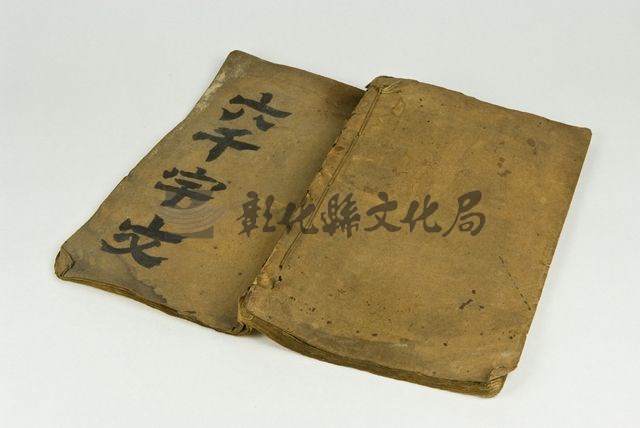 六千字文
彰化縣文化局